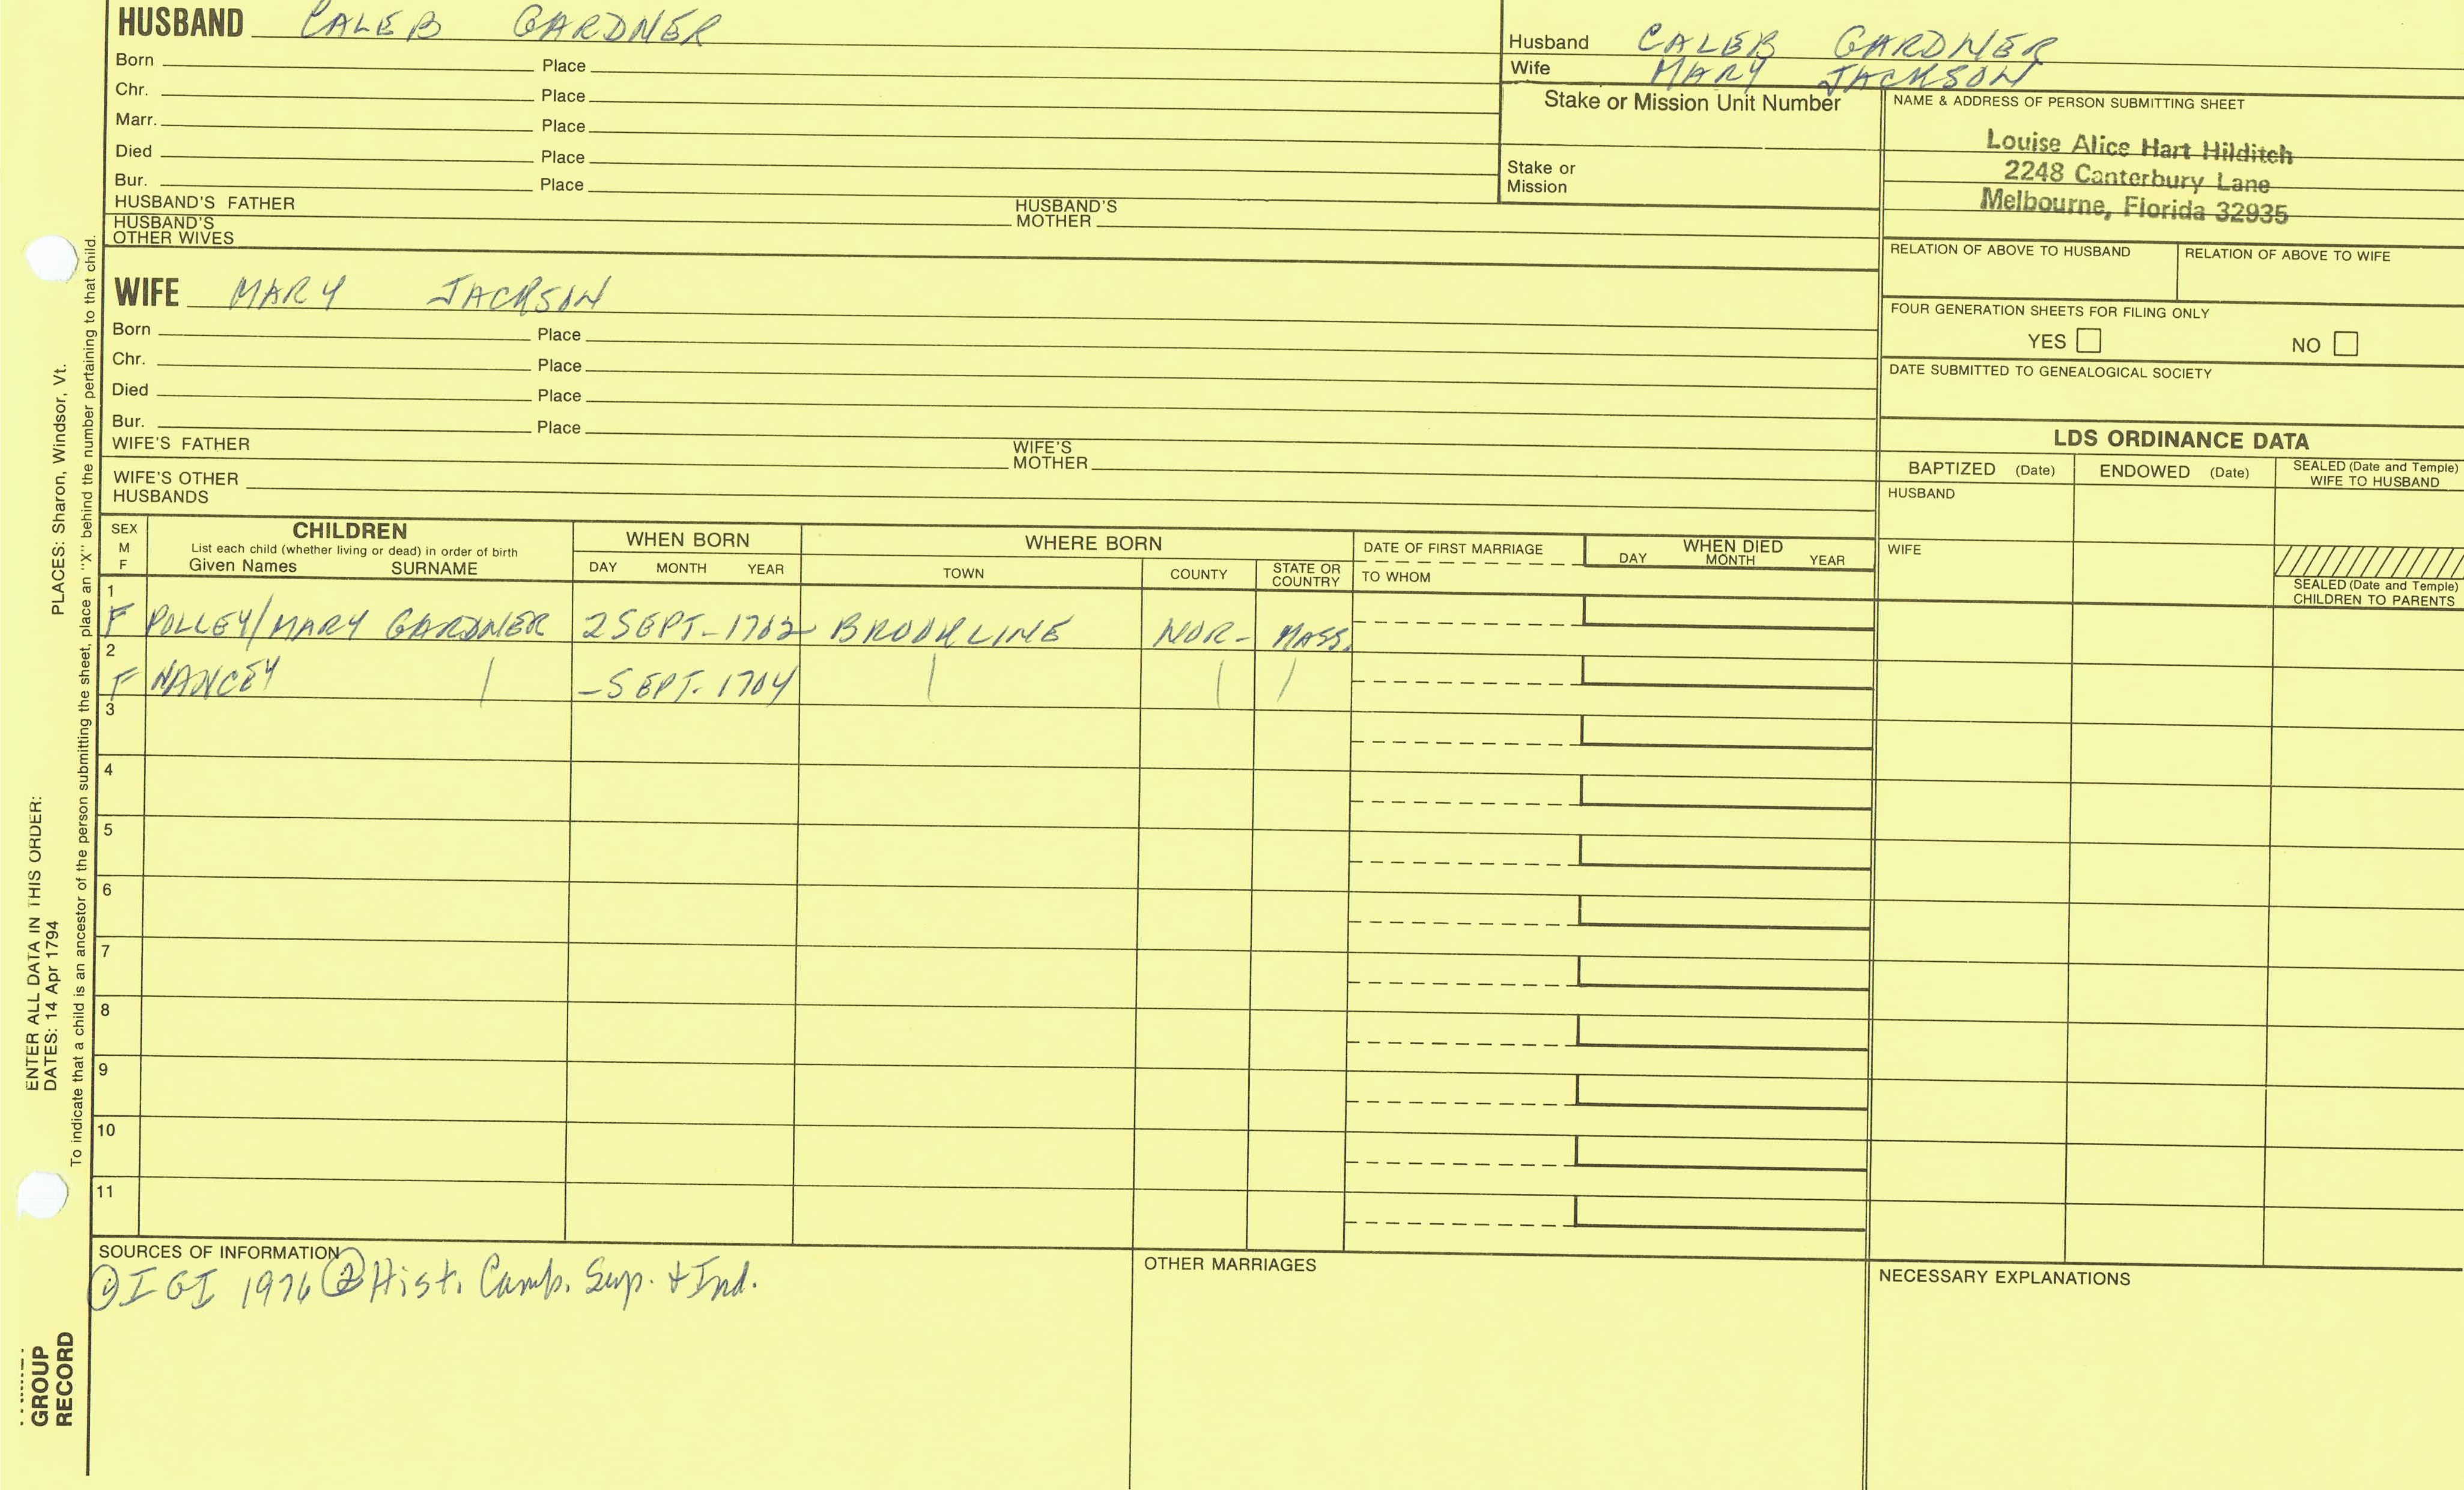 HUSBAND CALEB GARDNER
Born Place
Chr. Place
Marr. Place
Died Place
Bur. Place
HUSBAND'S FATHER HUSBAND'S MOTHER
HUSBAND'S OTHER WIVES
Husband CALEB GARDNER
Wife MARY JACKSON
Stake or Mission Unit Number
Stake or
Mission
NAME & ADDRESS OF PERSON SUBMITTING SHEET
Louise Alice Hart Hilditch
2248 Canterbury Lane
Melbourne, Florida 32935
RELATION OF ABOVE TO HUSBAND RELATION OF ABOVE TO WIFE
FOUR GENERATION SHEETS FOR FILING ONLY
YES NO
DATE SUBMITTED TO GENEALOGICAL SOCIETY
WIFE MARY JACKSON
Born Place
Chr. Place
Died Place
Bur. Place
WIFE'S FATHER WIFE'S MOTHER
WIFE'S OTHER
HUSBANDS
LDS ORDINANCE DATA
BAPTIZED (Date) ENDOWED (Date) SEALED (Date and Temple) WIFE TO HUSBAND
HUSBAND
WIFE
SEALED (Date and Temple)
CHILDREN TO PARENTS
SEX
M
F
CHILDREN
List each child (whether living or dead) in order of birth
Given Names SURNAME
WHEN BORN
DAY MONTH YEAR
WHERE BORN
TOWN COUNTY STATE OR COUNTRY
DATE OF FIRST MARRIAGE
TO WHOM
WHEN DIED
DAY MONTH YEAR
1
F POLLEY/MARY GARDNER 2 SEPT-1702 BROOKLINE NOR- MASS.
2
F NANCEY | -SEPT. 1704 | | |
3
4
5
6
7
8
9
10
11
SOURCES OF INFORMATION
① IGI 1976 ② Hist. Camb. Sup. + Ind.
OTHER MARRIAGES
NECESSARY EXPLANATIONS
ENTER ALL DATA IN THIS ORDER:
DATES: 14 Apr 1794 PLACES: Sharon, Windsor, Vt.
To indicate that a child is an ancestor of the person submitting the sheet, place an "X" behind the number pertaining to that child.
GROUP
RECORD